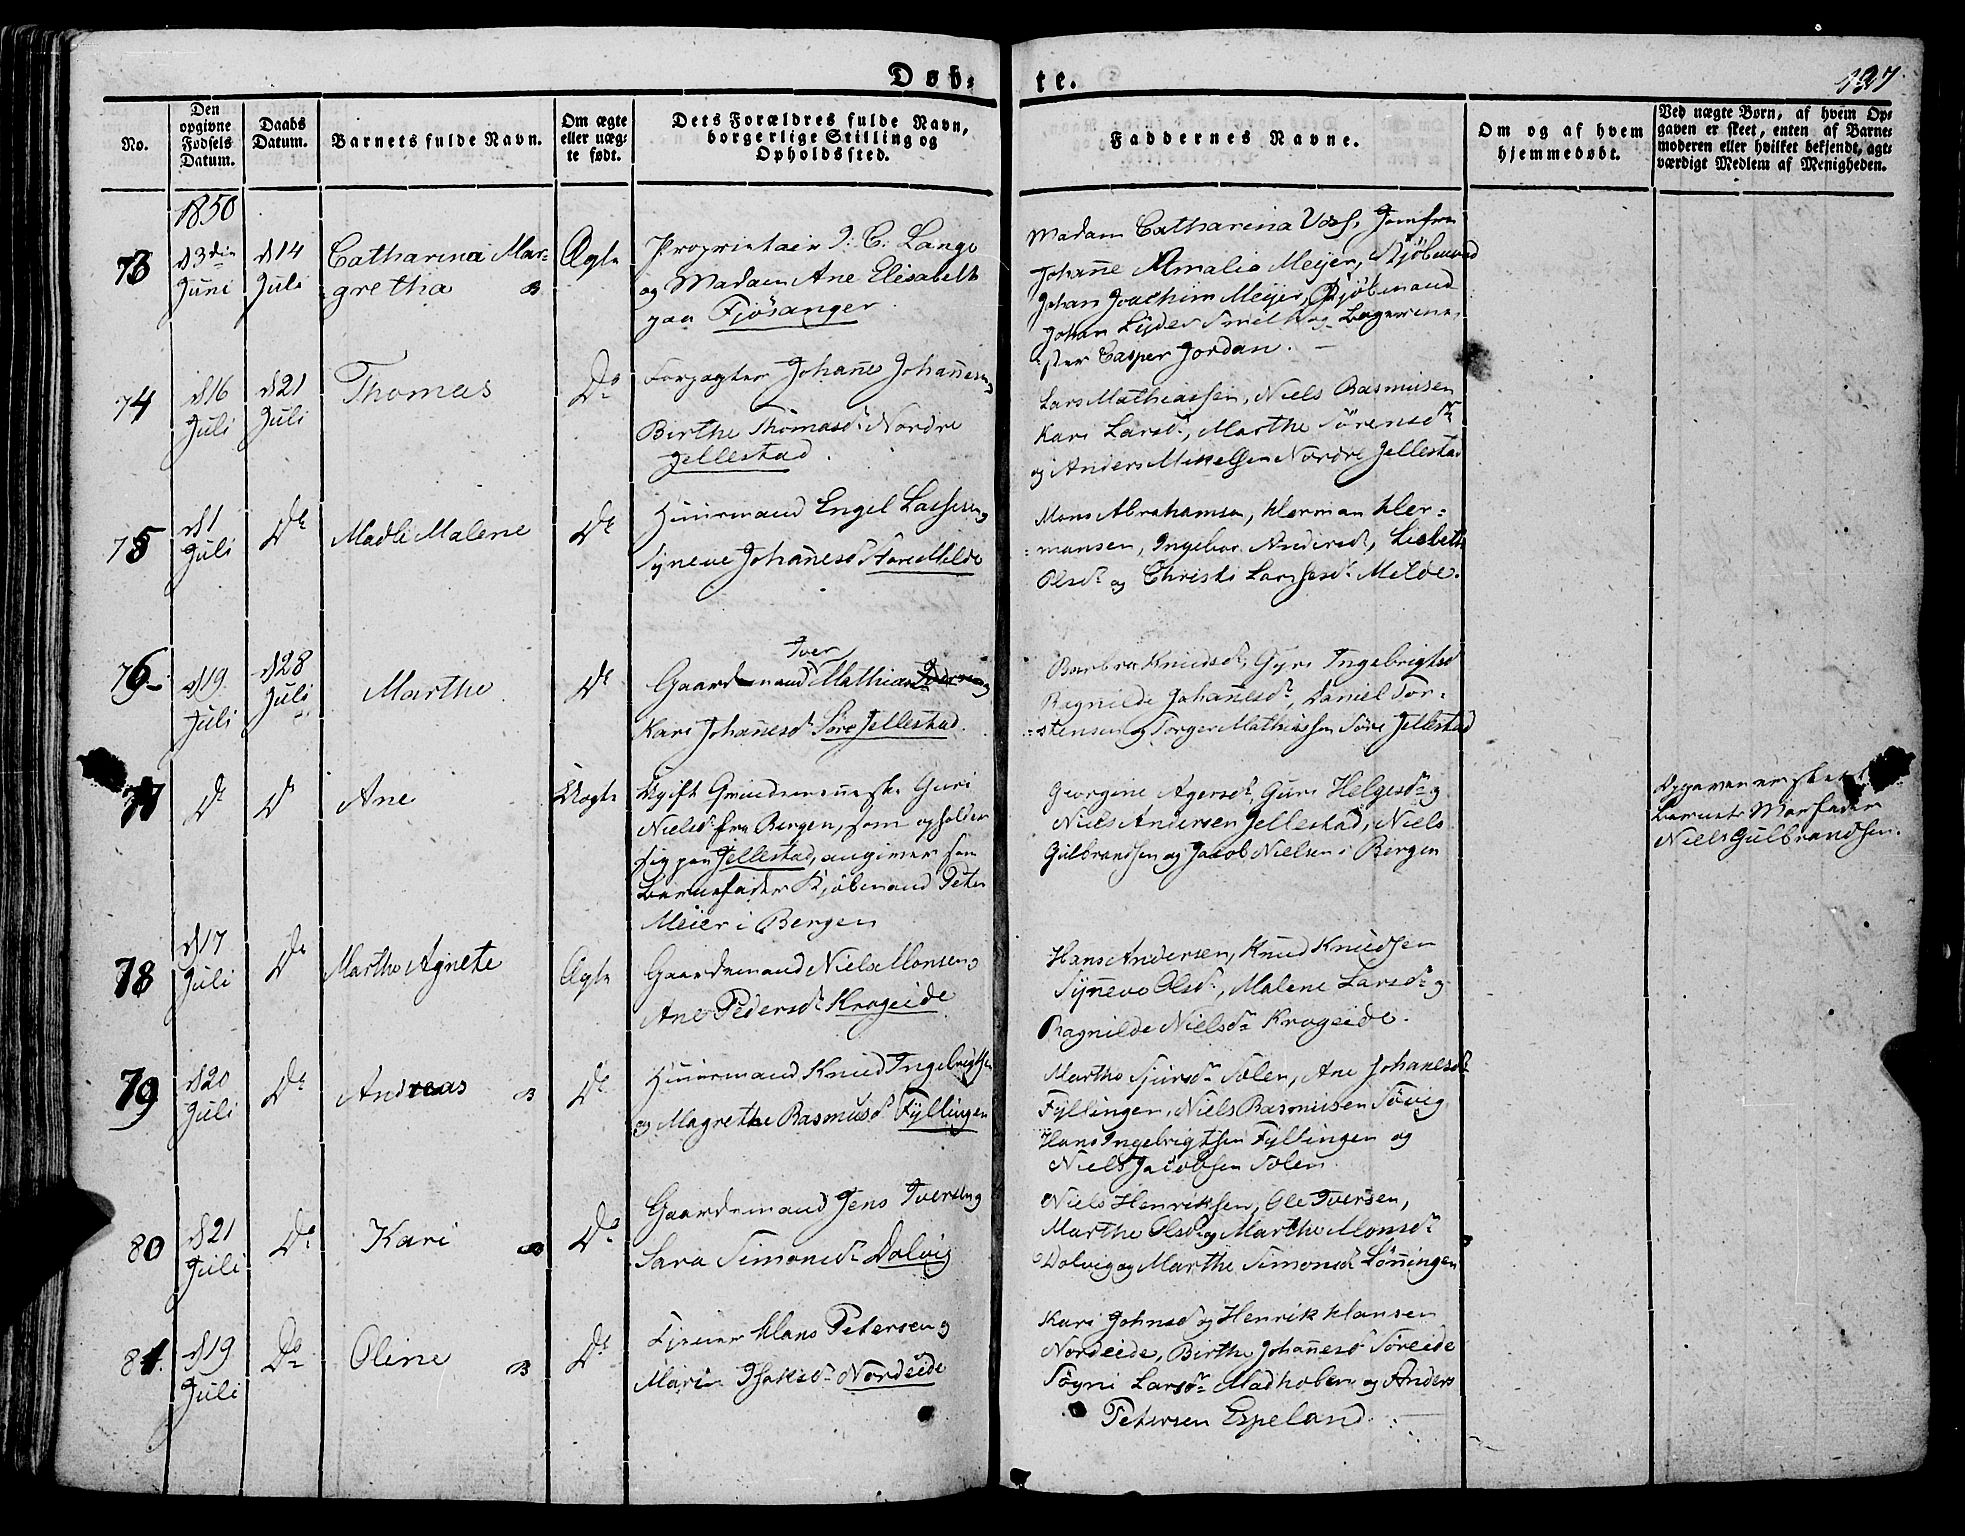 Døb-
te.
127
No.
Den
opgivne
Fødsels
Datum.
Daabs
Datum.
Barnets fulde Navn.
Om ægte
eller uæg-
te født.
Dets Forældres fulde Navn,
borgerlige Stilling og
Opholdssted.
Faddernes Navne.
Om og af hvem
hjemmedøbt.
Ved uægte Børn, af hvem Op-
gaven er skeet, enten af Barne-
moderen eller hvilket bekjendt, agt-
værdigt Medlem af Menigheden.
1850
73
d 3die
Juni
d 14
Juli
Catharina Mar-
gretha
Ægte
Proprietair J: C: Lange
og Madam Ane Elisabeth
paa Fjøsanger
Madam Catharina Voss, Jomfru
Johanne Amalia Meijer, Kjøbmand
Johan Joachim Meijer, Kjøbmand
Johan Lyder Smith og Bagerme-
ster Casper Jordan.
74
d 16
Juli
d 21
Juli
Thomas
Do
Forpagter Johanes Johanesen og
Birthe Thomasd. Nordre
Jellestad.
Lars Mathiassen, Niels Rasmusen
Kari Larsd., Marthe Sørensdr
og Anders Mikkelsen Nordre Jellestad
75
d 1
Juli
Do
Madli Malene
Do
Huusmand Engel Lassesen og
Syneve Johanesd. Store Milde
Mons Abrahamsen, Herman Her-
-mansen, Ingebor Andersd, Lisbeth
Olsd. og Christi Larssesd. Milde.
76
d 19
Juli
d 28
Juli
Marthe
Do
Iver
Gaardmand Mathias og
Kari Johanesd. Søre Jellestad.
Barbra Knudsd., Gyri Ingebrigtsd
Ragnilde Johanesd., Daniel Tor-
-stensen og Torger Mathiassen Søre Jellestad
77
Do
Do
Ane
Uægte
Ugift Fruentimmer Guri
Nielsd. fra Bergen, som opholder
sig paa Jellestad, angiver som
Barnefader Kjøbmand Peter
Meier i Bergen
Georgine Agersd., Guri Helgesdr og
Niels Andersen Jellestad, Niels
Gulbrandsen og Jacob Nielsen i Bergen
Opgaven er skeet af
Barnets Morfader
Niels Gulbrandsen.
78
d 17
Juli
Do
Marthe Agnete
Ægte
Gaardmand Niels Monsen og
Ane Pedersd. Krogeide
Hans Andersen, Knud Knudsen
Synneve Olsd., Malene Larsd. og
Ragnilde Nielsd. Krogeide.
79
d 20
Juli
Do
Andreas
Do
Huusmand Knud Ingebrigtsen
og Magrethe Rasmusd. Fyllingen
Marthe Sjursd. Solen, Ane Johanesd.
Fyllingen, Niels Rasmusen Søvig
Hans Ingebrigtsen Fyllingen og
Niels Jacobsen Solen.
80
d 21
Juli
Do
Kari
Do
Gaardmand Jens Iversen og
Sara Simonsd. Dolvig
Niels Henriksen, Ole Iversen,
Marthe Olsd. og Marthe Monsd.
Dolvig og Marthe Simonsd. Lønningen
81
d 19
Juli
Do
Oline
Do
Hans Petersen og
Mari Isaksd. Nordeide
Kari Johnsd og Henrik Hansen
Nordeide, Birthe Johanesd Søreide
Søgni Larsd. og Anders
Petersen Espeland.